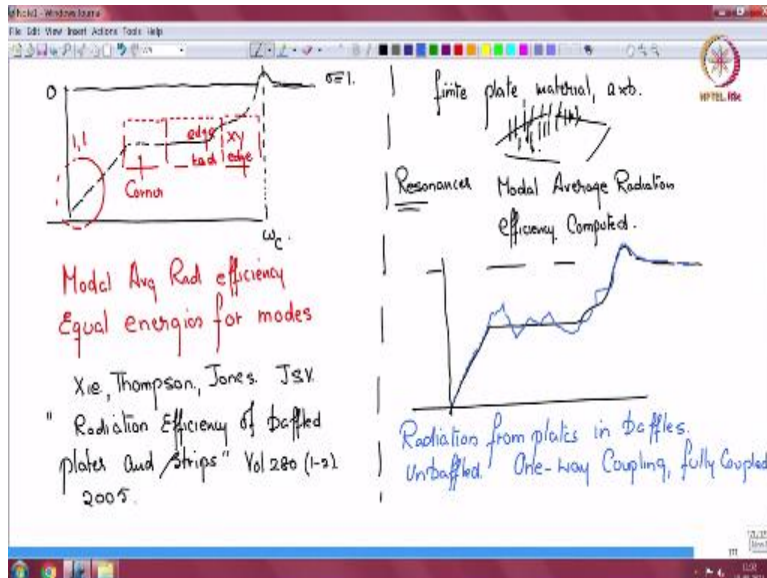 Note1 - Windows Journal
File Edit View Insert Actions Tools Help
NPTEL
0
σ=1.
1,1
edge
rad
xy
edge
Corner
ωc.
Modal Avg Rad efficiency
Equal energies for modes
Xie, Thompson, Jones. JSV.
" Radiation Efficiency of baffled
plates and strips" Vol 280 (1-2)
2005.
finite plate, material, axb.
Resonances Modal Average Radiation
efficiency Computed.
Radiation from plates in baffles.
Unbaffled. One-way Coupling, fully Coupled